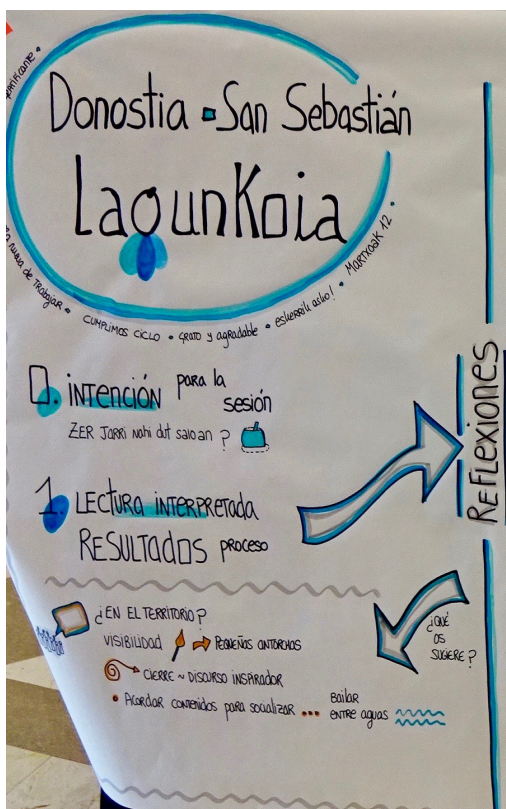 Donostia ▪ San Sebastián
LagunKoia
nueva de trabajar • CUMPLIMOS CICLO • GRATO y agradable • eskerrik asko! • MARTXOAK 12 •
0. INTENCIÓN para la
sesión
ZER JARRI NAHI dut saioan?
1. LECTURA INTERPRETADA
RESULTADOS PROCESO
REFLEXIONES
¿EN EL TERRITORIO?
VISIBILIDAD
PEQUEÑAS ANTORCHAS
CIERRE ~ DISCURSO INSPIRADOR
• ACORDAR CONTENIDOS PARA SOCIALIZAR ...
bailar
entre aguas
¿QUÉ
OS
SUGIERE?